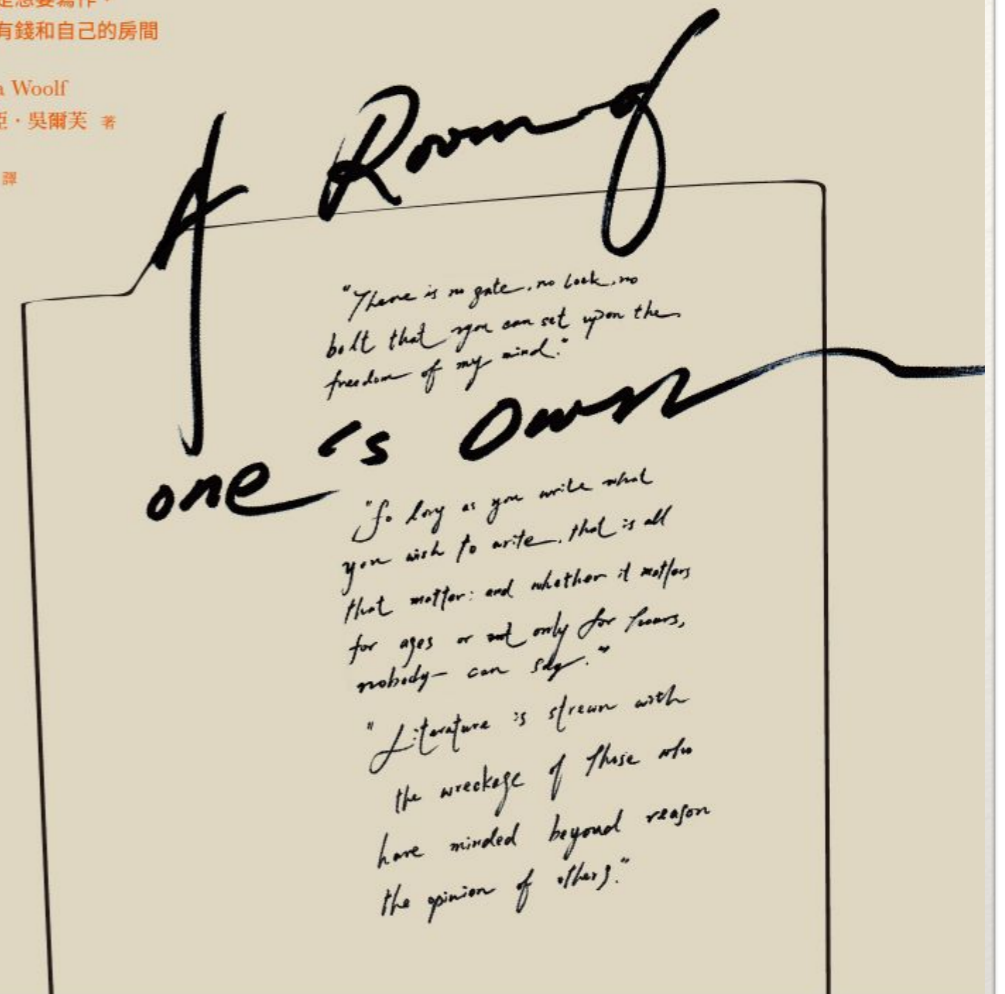 有錢和自己的房間
Woolf
吳爾芙 著
譯
A Room of
"There is no gate, no lock, no
bolt that you can set upon the
freedom of my mind."
one's Own
"So long as you write what
you wish to write, that is all
that matter: and whether it matters
for ages or not only for hours,
nobody can say."
"Literature is strewn with
the wreckage of those who
have minded beyond reason
the opinion of others."